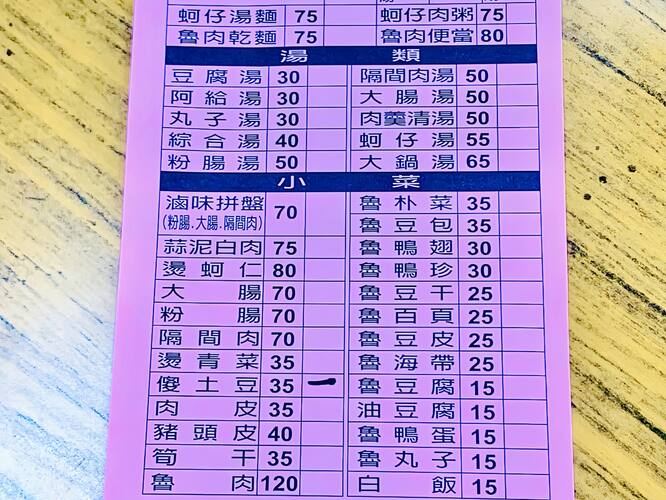 蚵仔湯麵 75 蚵仔肉粥 75
魯肉乾麵 75 魯肉便當 80
湯 類
豆腐湯 30 隔間肉湯 50
阿給湯 30 大腸湯 50
丸子湯 30 肉羹清湯 50
綜合湯 40 蚵仔湯 55
粉腸湯 50 大鍋湯 65
小 菜
滷味拼盤 70 魯朴菜 35
(粉腸.大腸.隔間肉) 魯豆包 35
蒜泥白肉 75 魯鴨翅 30
燙蚵仁 80 魯鴨珍 30
大腸 70 魯豆干 25
粉腸 70 魯百頁 25
隔間肉 70 魯豆皮 25
燙青菜 35 魯海帶 25
傻土豆 35 一 魯豆腐 15
肉皮 35 油豆腐 15
豬頭皮 40 魯鴨蛋 15
筍干 35 魯丸子 15
魯肉 120 白飯 15